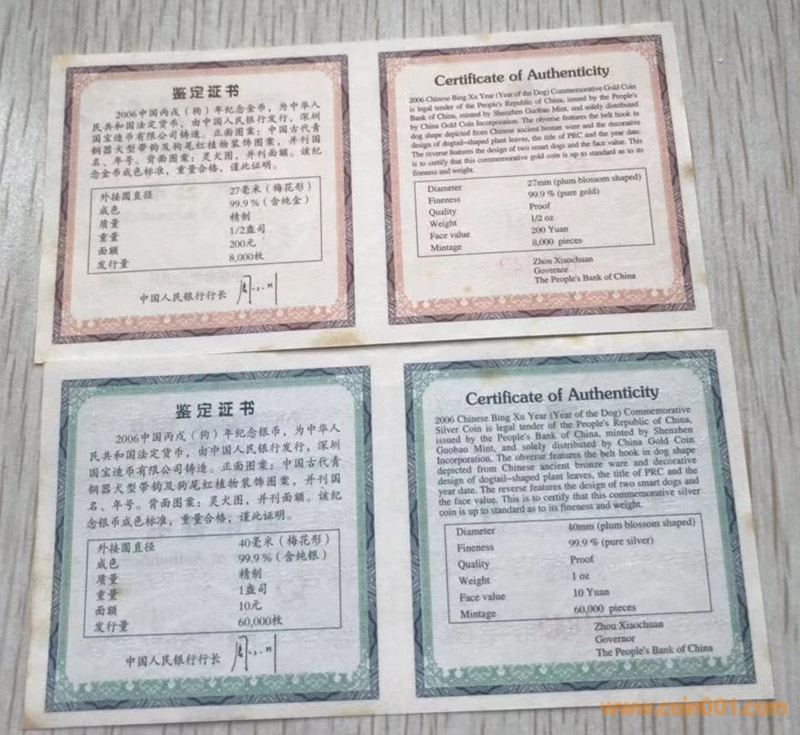 鉴定证书
2006中国丙戌（狗）年纪念金币，为中华人
民共和国法定货币，由中国人民银行发行，深圳
国宝造币有限公司铸造。正面图案：中国古代青
铜器犬型带钩及狗尾红植物装饰图案，并刊国
名、年号。背面图案：灵犬图，并刊面额。该纪
念金币成色标准，重量合格，谨此证明。
外接圆直径 27毫米（梅花形）
成色 99.9%（含纯金）
质量 精制
重量 1/2盎司
面额 200元
发行量 8,000枚
中国人民银行行长
Certificate of Authenticity
2006 Chinese Bing Xu Year (Year of the Dog) Commemorative Gold Coin
is legal tender of the People's Republic of China, issued by the People's
Bank of China, minted by Shenzhen Guobao Mint, and solely distributed
by China Gold Coin Incorporation. The obverse features the belt hook in
dog shape depicted from Chinese ancient bronze ware and the decorative
design of dogtail-shaped plant leaves, the title of PRC and the year date.
The reverse features the design of two smart dogs and the face value. This
is to certify that this commemorative gold coin is up to standard as to its
fineness and weight.
Diameter 27mm (plum blossom shaped)
Fineness 99.9 % (pure gold)
Quality Proof
Weight 1/2 oz
Face value 200 Yuan
Mintage 8,000 pieces
Zhou Xiaochuan
Governor
The People's Bank of China
鉴定证书
2006中国丙戌（狗）年纪念银币，为中华人
民共和国法定货币，由中国人民银行发行，深圳
国宝造币有限公司铸造。正面图案：中国古代青
铜器犬型带钩及狗尾红植物装饰图案，并刊国
名、年号。背面图案：灵犬图，并刊面额。该纪
念银币成色标准，重量合格，谨此证明。
外接圆直径 40毫米（梅花形）
成色 99.9%（含纯银）
质量 精制
重量 1盎司
面额 10元
发行量 60,000枚
中国人民银行行长
Certificate of Authenticity
2006 Chinese Bing Xu Year (Year of the Dog) Commemorative
Silver Coin is legal tender of the People's Republic of China,
issued by the People's Bank of China, minted by Shenzhen
Guobao Mint, and solely distributed by China Gold Coin
Incorporation. The obverse features the belt hook in dog shape
depicted from Chinese ancient bronze ware and decorative
design of dogtail-shaped plant leaves, the title of PRC and the
year date. The reverse features the design of two smart dogs and
the face value. This is to certify that this commemorative silver
coin is up to standard as to its fineness and weight.
Diameter 40mm (plum blossom shaped)
Fineness 99.9 % (pure silver)
Quality Proof
Weight 1 oz
Face value 10 Yuan
Mintage 60,000 pieces
Zhou Xiaochuan
Governor
The People's Bank of China
www.coin001.com